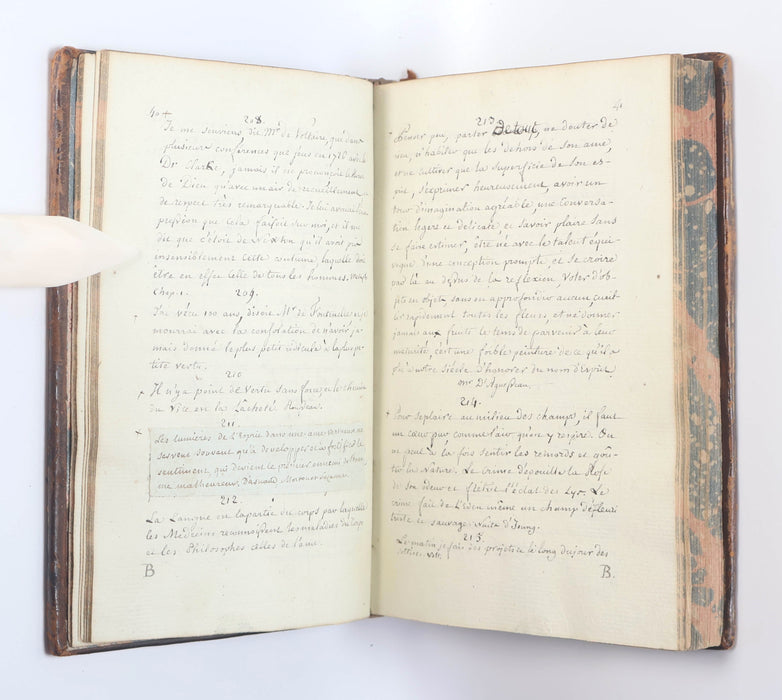 40+
208.
Je me souviens, dit Mr. de Voltaire, que dans
plusieurs conférences que j'eus en 1726 avec le
Dr. Clarke, jamais il ne prononçoit le nom
de Dieu qu'avec un air de recueillement et
de respect très remarquable. Je lui avouai l'im
pression que cela faisoit sur moi, et il me
dit que c'étoit de Newton qu'il avoit pris
insensiblement cette coutume, laquelle doit
être en effet celle de tous les hommes.
Chap. 1.
209.
J'ai vécu 100 ans, disoit Mr. de Fontenelle, et je
mourrai avec la consolation de n'avoir ja
mais donné le plus petit ridicule à la plus pe-
tite vertu.
210
Il n'y a point de vertu sans force, et le chemin
du Vice est la lâcheté.
211.
Les lumières de l'Esprit dans une ame vertueuse ne
servent souvent qu'à developper et à fortifier le
sentiment, qui devient le premier
me malheureux.
212.
La Langue est la partie du corps par laquelle
les Médecins reconnoissent les maladies du corps
et les Philosophes celles de l'ame.
B
41
213.
Penser peu, parler de tout, ne douter de
rien, n'habiter que les dehors de son ame,
et ne cultiver que la superficie de son es-
prit, s'exprimer heureusement, avoir un
tour d'imagination agréable, une conversa-
tion legere et délicate, et savoir plaire sans
se faire estimer, être né avec le talent équi-
voque d'une conception prompte, et se croire
par là au dessus de la reflexion, voler d'ob-
jets en objets, sans en approfondir aucun, cueil-
lir rapidement toutes les fleurs, et ne donner
jamais aux fruits le tems de parvenir à leur
maturité, c'est une foible peinture de ce qu'il a
plu à notre siècle d'honorer du nom d'esprit.
Mr. D'Aguesseau.
214.
Pour se plaire au milieu des champs, il faut
un cœur pur comme l'air qu'on y respire. On
ne peut à la fois sentir les remords et goû-
ter la Nature. Le crime dépouille la Rose
de son odeur et flétrit l'éclat des Lys. Le
crime fait de l'Eden même un champ de fleurs
triste et sauvage. Nuits d'Young.
215.
Le matin je fais des projets et le long du jour des
sottises.
B.